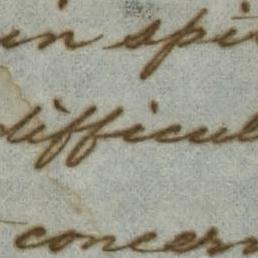 in spi
difficul
concern